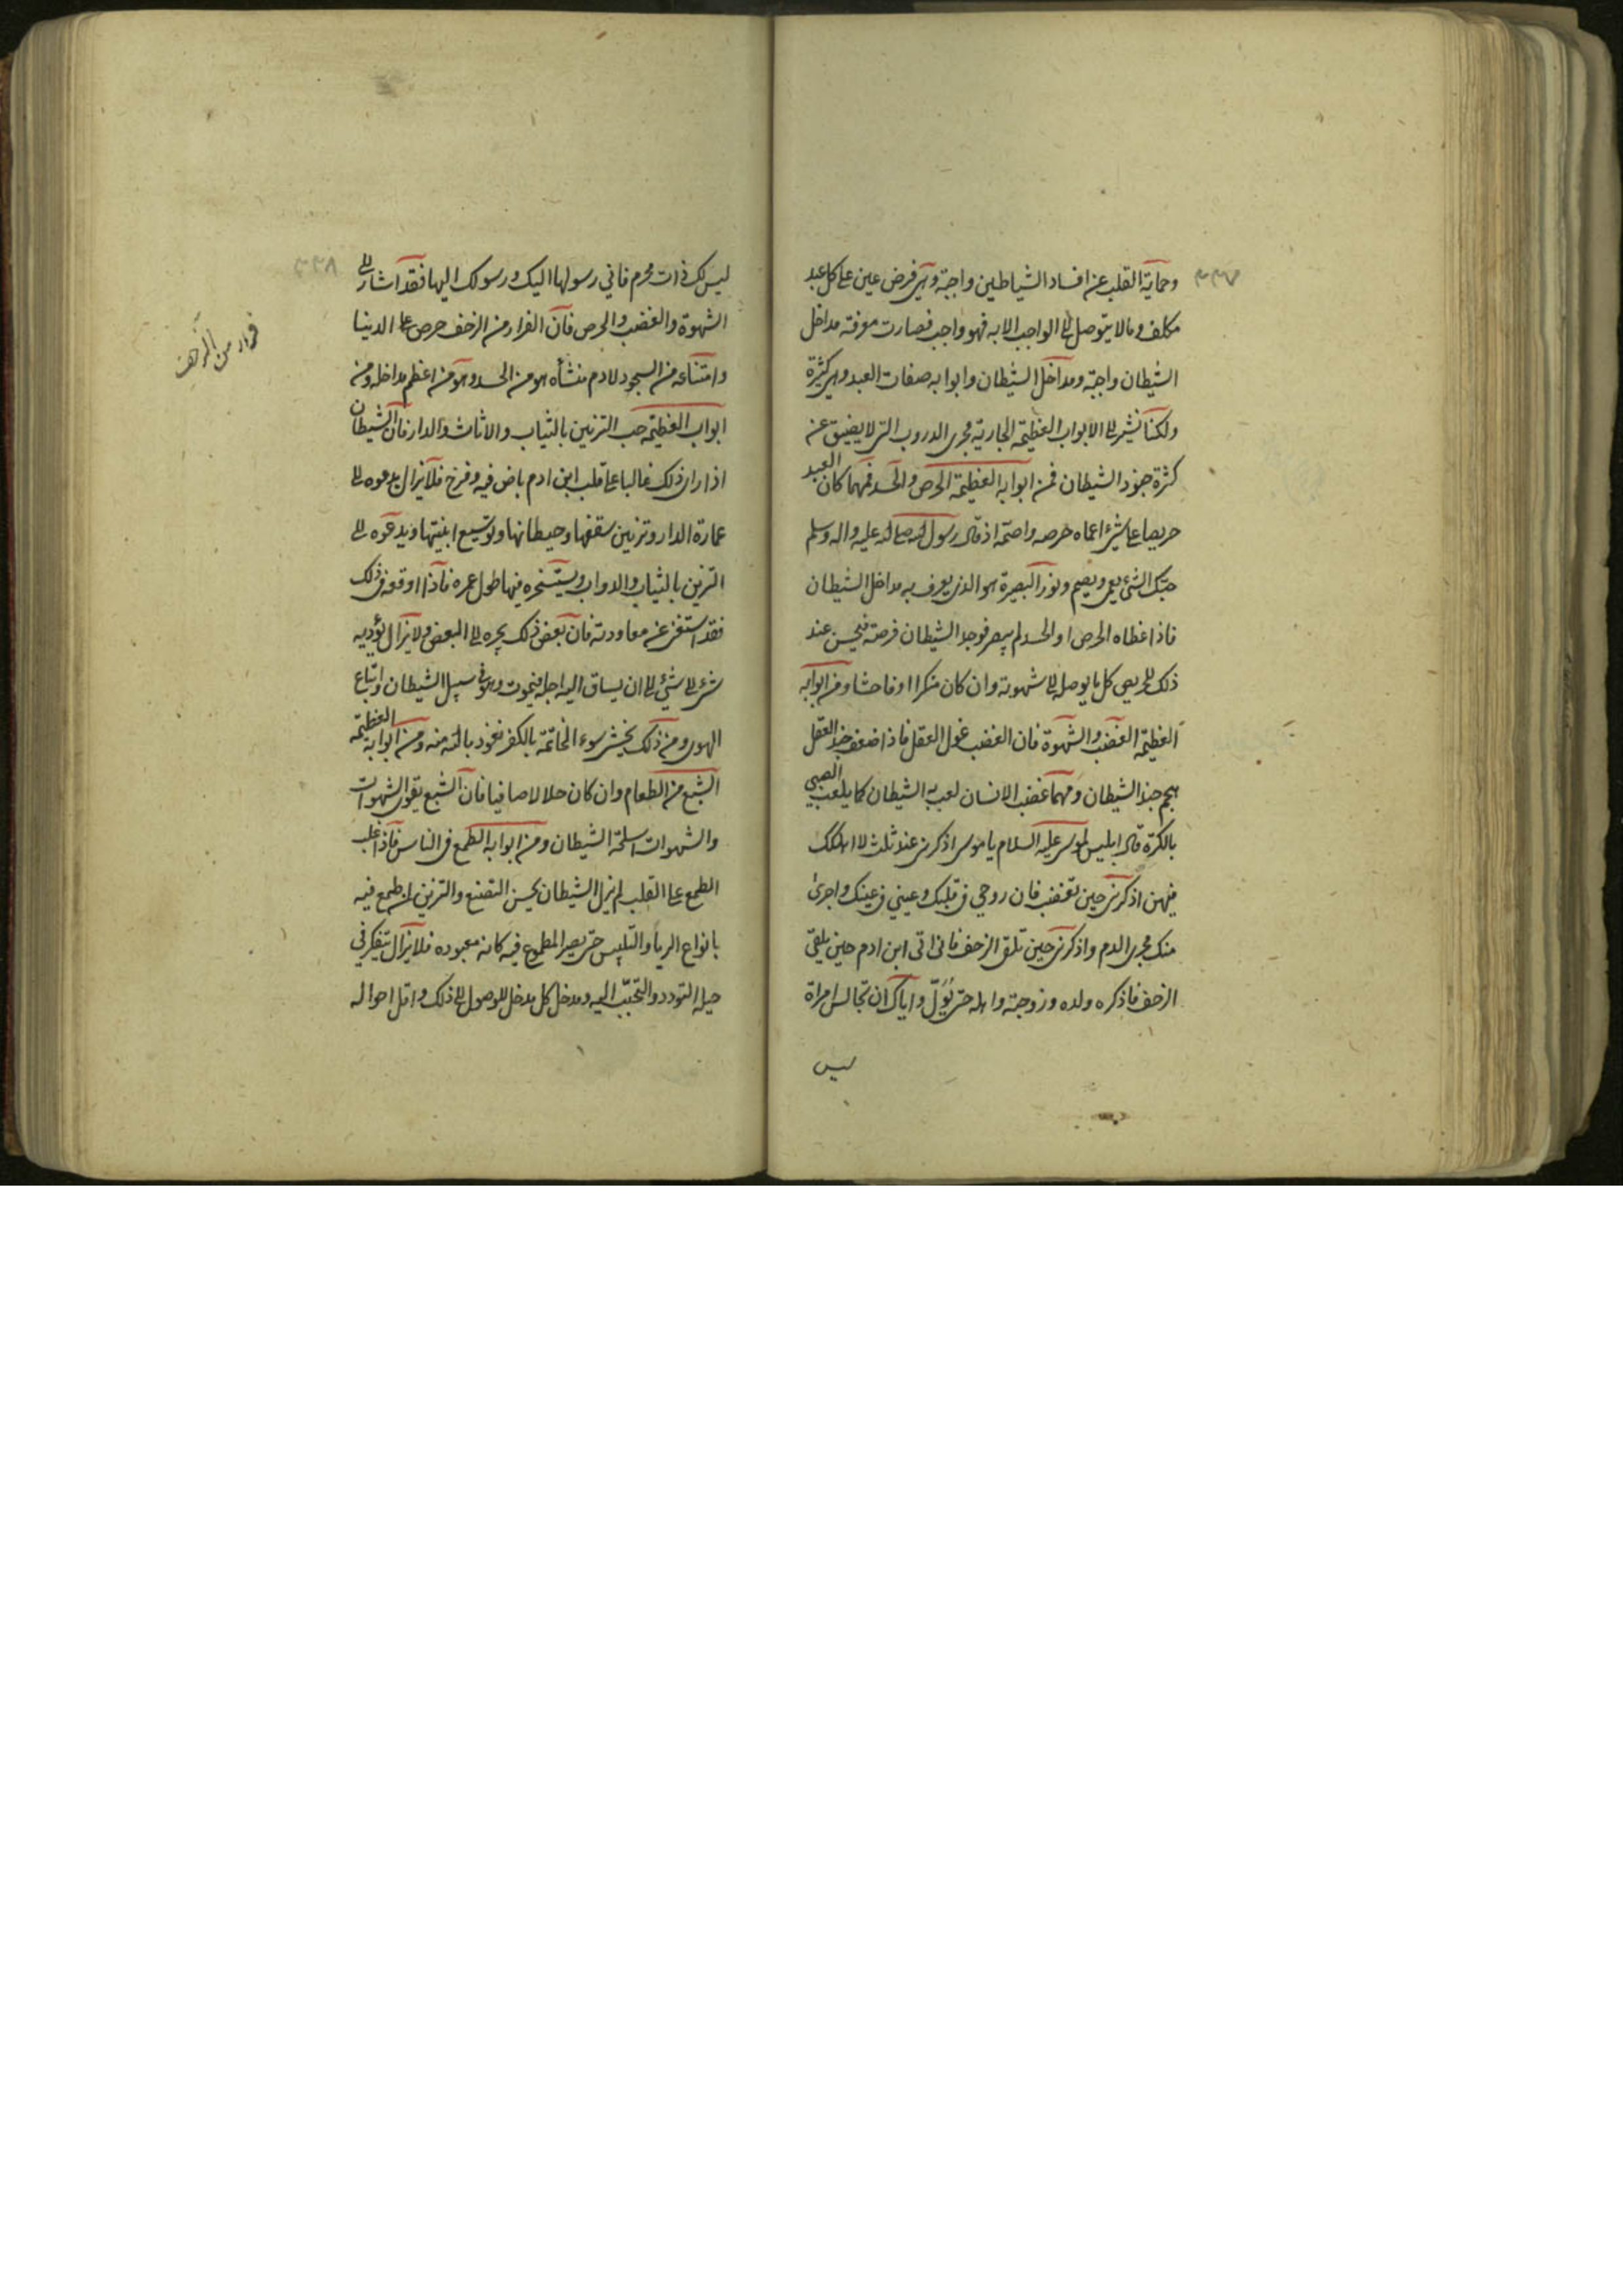 ٣٣٧
وحماية القلب عن افساد الشياطين واجبة وهي فرض عين على كل عبد
مكلف وما لا يتوصل الى الواجب الا به فهو واجب فصارت معرفة مداخل
الشيطان واجبة ومداخل الشيطان وابوابه صفات العبد وهي كثيرة
ولكنا نشير الى الابواب العظيمة الجارية مجرى الدروب التي لا يضيق عن
كثرة جنود الشيطان فمن ابوابه العظيمة الحرص والحسد فمهما كان العبد
حريصا على شئ اعماه حرصه واصمه اذ قال رسول الله صلى الله عليه واله وسلم
حبك الشئ يعمي ويصم ونور البصيرة هو الذي يعرف به مداخل الشيطان
فاذا غطاه الحرص او الحسد لم يبصر فوجد الشيطان فرصة فيحسن عند
ذلك للحريص كل ما يوصله الى شهوته وان كان منكرا او فاحشا ومن ابوابه
العظيمة الغضب والشهوة فان الغضب غول العقل فاذا ضعف جند العقل
هجم جند الشيطان ومهما غضب الانسان لعب به الشيطان كما يلعب الصبي
بالكرة قال ابليس لموسى عليه السلام يا موسى اذكرني عند ثلث لا اهلكك
فيهن اذكرني حين تغضب فان روحي في قلبك وعيني في عينك واجرى
منك مجرى الدم واذكرني حين تلقى الزحف فاني اتى ابن ادم حين يلقى
الزحف فاذكره ولده وزوجته واهله حتى يولّ واياك ان تجالس امراة
ليس
٣٣٨
ليس لك ذات محرم فاني رسولها اليك ورسولك اليها فقد اشار الى
الشهوة والغضب والحرص فان الفرار من الزحف حرص على الدينا
وامتناعه من السجود لادم منشأه هو من الحسد وهو من اعظم مداخله ومن
ابواب العظيمة حب التزيين بالثياب والاثاث والدار فان الشيطان
اذا راى ذلك غالبا على قلب ابن ادم باض فيه وفرخ فلا يزال يدعوه الى
عمارة الدار وتزيين سقفها وحيطانها وتوسيع ابنيتها ويدعوه الى
التزين بالثياب والدواب ويستسخره فيها طول عمره فاذا اوقعه في ذلك
فقد استغنى عن معاودته فان بعض ذلك يجره الى البعض ولا يزال يؤديه
شئ الى شئ الى ان يساق اليه اجله فيموت وهو في سبيل الشيطان واتباع
الهوى ومن ذلك يخشى سوء الخاتمة بالكفر نعوذ بالله منه ومن ابوابه العظيمة
الشبع من الطعام وان كان حلالا صافيا فان الشبع يقوى الشهوات
والشهوات اسلحة الشيطان ومن ابوابه الطمع في الناس فاذا غلب
الطمع على القلب لم يزل الشيطان يحسن التصنع والتزين لمن طمع فيه
بانواع الريا والتلبيس حتى يصير المطموع فيه كانه معبوده فلا يزال يتفكر في
حيلة التودد والتحبب اليه ومدخل كل مدخل للوصول الى ذلك واقل احواله
فرار من الزحف